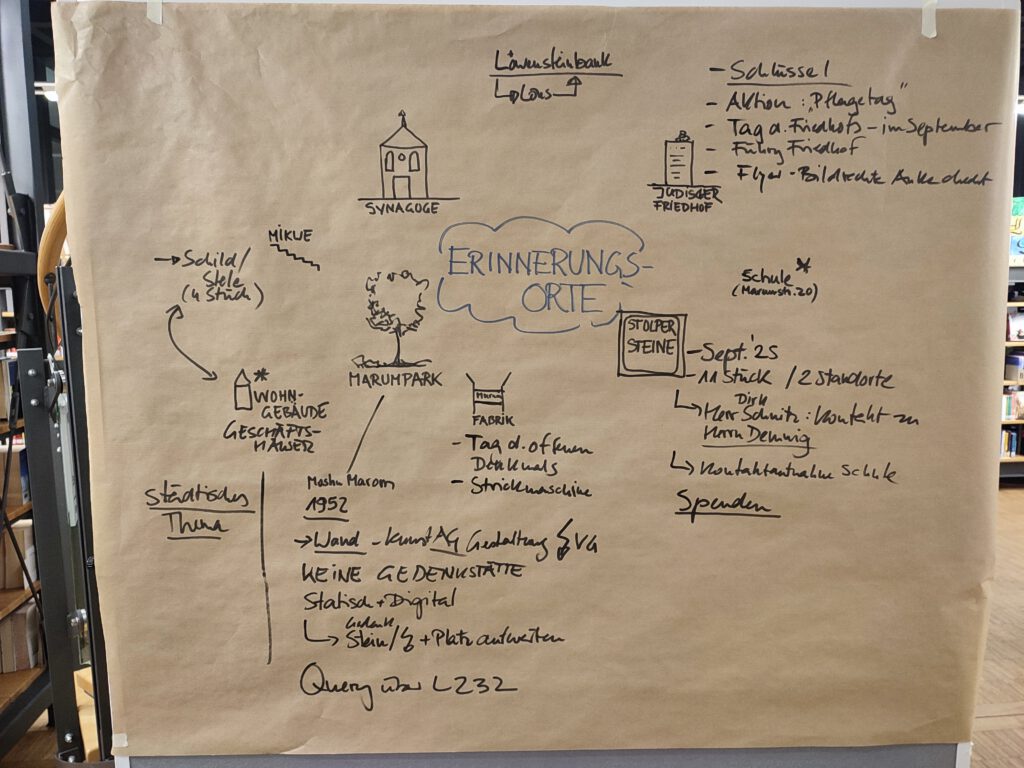 Löwensteinbank
Schlüssel
SYNAGOGE
- Aktion: "Pflegetag"
- Tag d. Friedhofs - im September
- Führg Friedhof
- Flyer - Bildrechte
JÜDISCHER
FRIEDHOF
MIKUE
→ Schild/
Stele
(4 Stück)
ERINNERUNGS-
ORTE
Schule*
(Marumstr. 20)
MARUMPARK
*WOHN-
GEBÄUDE
GESCHÄFTS-
HÄUSER
Marum
FABRIK
- Tag d. offenen
Denkmals
- Strickmaschine
STOLPER
STEINE
- Sept. '25
- 11 Stück / 2 Standorte
Dirk
Herr Schmitz: Kontakt zu
Herrn
Kontaktaufnahme Schule
Spenden
Städtisches
Thema
1952
→ Wand - Kunst AG Gestaltung VG
KEINE GEDENKSTÄTTE
Statisch + Digital
Gedenk
Stein/ + Platz aufweiten
Query über L232